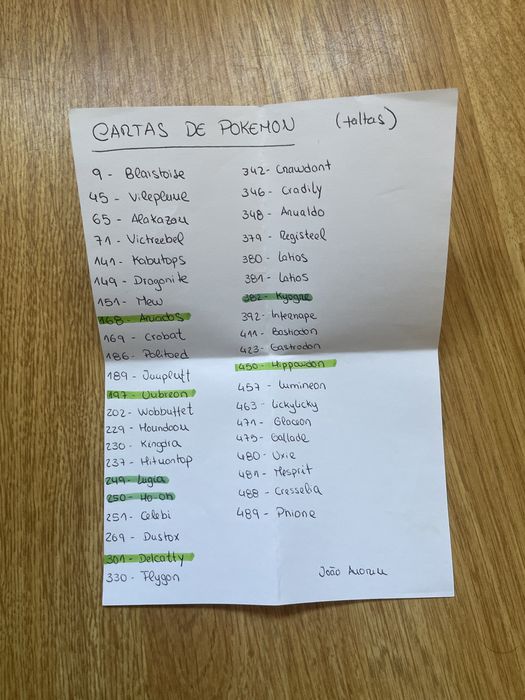 CARTAS DE POKEMON (faltas)
9 - Blaistoise
45 - Vileplume
65 - Alakazau
71 - Victreebel
141 - Kabutops
149 - Dragonite
151 - Mew
168 - Ariados
169 - Crobat
186 - Politoed
189 - Jumpluff
197 - Umbreon
202 - Wobbuffet
229 - Houndoou
230 - Kingdra
237 - Hitmontop
249 - Lugia
250 - Ho-oh
251 - Celebi
269 - Dustox
301 - Delcatty
330 - Flygon
342 - Crawdant
346 - Cradily
348 - Arualdo
379 - Registeel
380 - Latios
381 - Latios
382 - Kyogre
392 - Infernape
411 - Bastiodon
423 - Gastrodon
450 - Hippowdon
457 - Lumineon
463 - Lickylicky
471 - Glaceon
475 - Gallade
480 - Uxie
481 - Mesprit
488 - Cresselia
489 - Phione
João Amorim